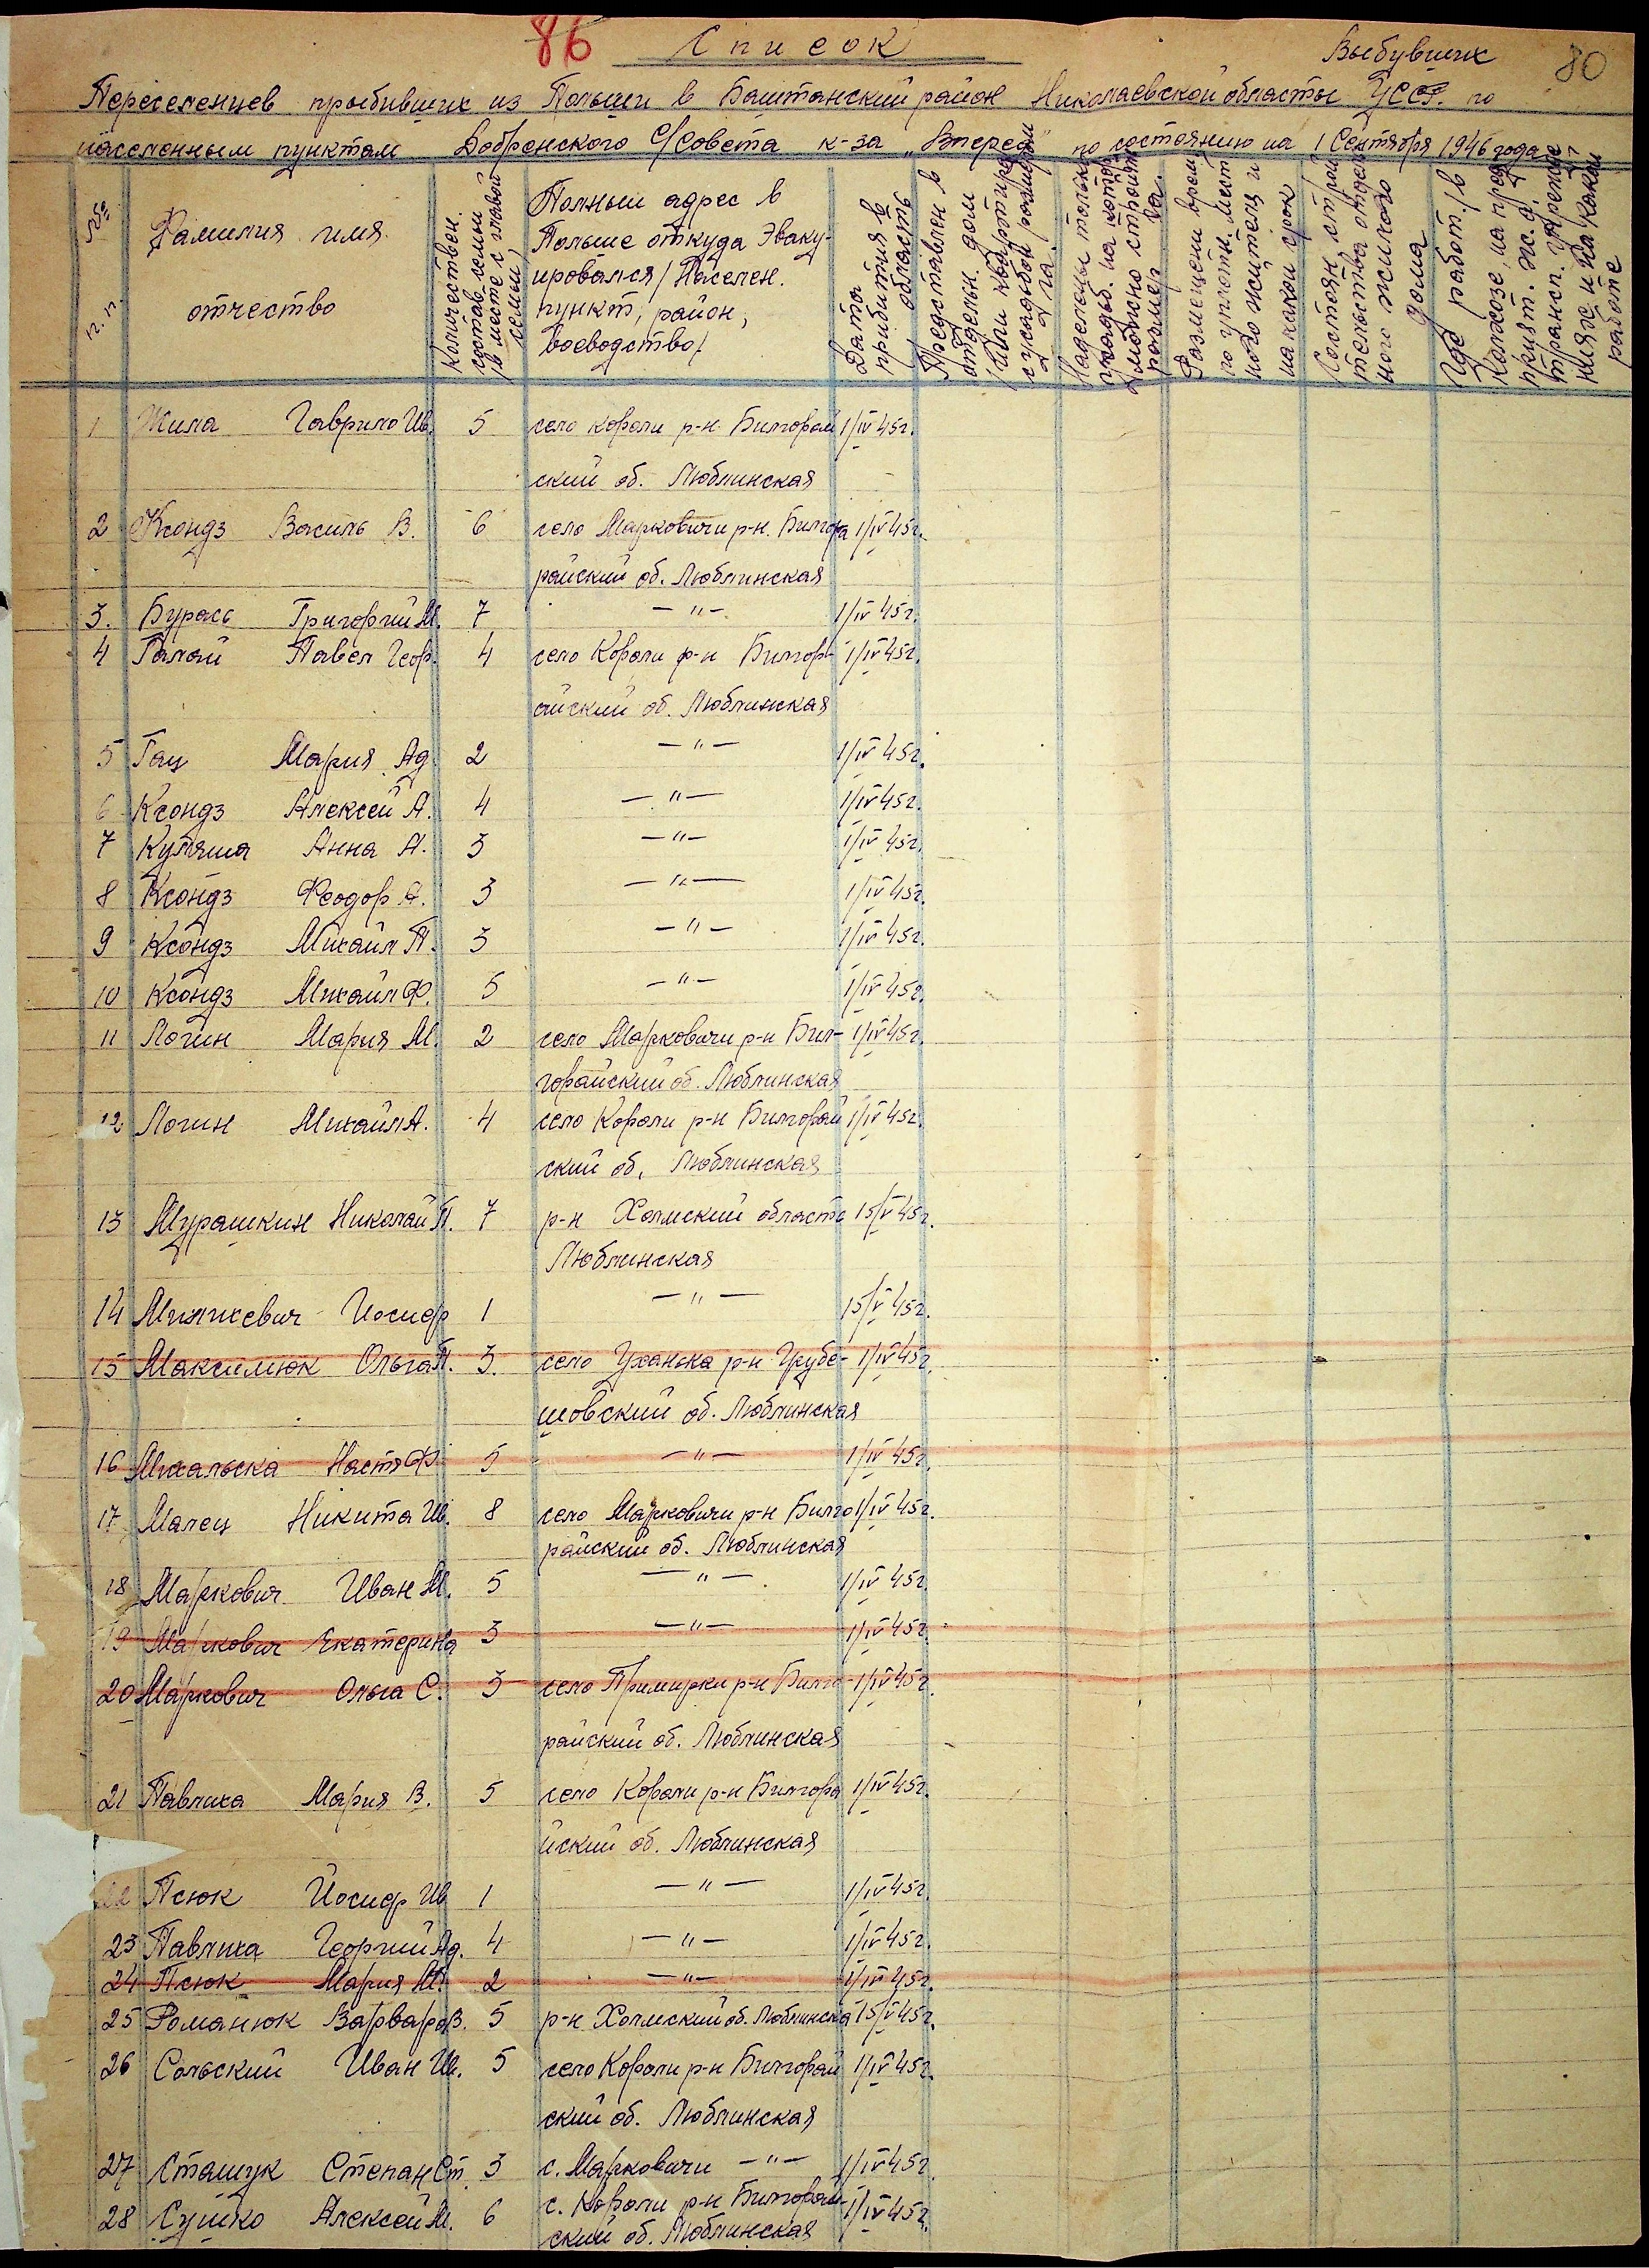 86 Список Выбувших 80
Переселенцев прыбивших из Польши в Баштанский район Николаевской областы УССР. по
населенным пунктам Добренского С/Совета к-за „Вперед" по состоянию на 1 Сентября 1946 года
№№ п. п.
Фамилия имя
отчество
Количествен.
состав семьи
/в месте с главой
семьи/
Полный адрес в
Польше откуда Эваку-
ировался/Населен.
пункт, район,
воеводство/
Дата
прибытия в
область
Представлен в
отдельн. дом
с усадьбой размером
Размещены врем.
на какой срок
Состоян. строи
тельства отдель
ного жилого
дома
Где работ. /в
Колхозе, на пред
работе
1 Жила Гаврило Ив. 5 село Короли р-н Билгорай 1/IV 45г.
ский об. Люблинская
2 Ксондз Василь В. 6 село Марковичи р-н. Билгора 1/IV 45г.
райский об. Люблинская
3. Бурась Григорий М. 7 —"— 1/IV 45г.
4 Галай Павел Геор. 4 село Короли р-н Билгор- 1/IV 45г.
айский об. Люблинская
5 Гац Мария Ад. 2 —"— 1/IV 45г.
6 Ксондз Алексей А. 4 —"— 1/IV 45г.
7 Куляша Анна А. 3 —"— 1/IV 45г.
8 Ксондз Феодор А. 3 —"— 1/IV 45г.
9 Ксондз Михаил П. 3 —"— 1/IV 45г.
10 Ксондз Михаил Ф. 5 —"— 1/IV 45г.
11 Логин Мария М. 2 село Марковичи р-н Бил- 1/IV 45г.
горайский об. Люблинская
12 Логин Михаил А. 4 село Короли р-н Билгорай 1/IV 45г.
ский об. Люблинская
13 Мурашкин Николай П. 7 р-н Холмский область 15/V 45г.
Люблинская
14 Иосиф 1 —"— 15/V 45г.
15 Максимюк Ольга П. 3. село Уханька р-н Грубе- 1/IV 45г.
шовский об. Люблинская
16 Михальска Настя Ф. 5 —"— 1/IV 45г.
17 Малец Никита Ив. 8 село Марковичи р-н Билго 1/IV 45г.
райский об. Люблинская
18 Маркович Иван М. 5 —"— 1/IV 45г.
19 Маркович Екатерина 3 —"— 1/IV 45г.
20 Маркович Ольга С. 3 село Примирки р-н Билго- 1/IV 45г.
райский об. Люблинская
21 Павлиха Мария В. 5 село Короли р-н Билгора 1/IV 45г.
йский об. Люблинская
22 Псюк Йосиф Ив 1 —"— 1/IV 45г.
23 Павлиха Георгий Ад. 4 —"— 1/IV 45г.
24 Псюк Мария М. 2 —"— 1/IV 45г.
25 Романюк Варвара В. 5 р-н Холмский об. Люблинска 15/V 45г.
26 Сольский Иван Ив. 5 село Короли р-н Билгорай 1/IV 45г.
ский об. Люблинская
27 Сташук Степан Ст. 3 с. Марковичи —"— 1/IV 45г.
28 Сушко Алексей М. 6 с. Короли р-н Билгорай- 1/IV 45г.
ский об. Люблинская